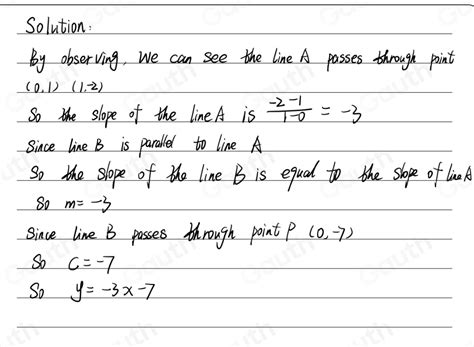 Solution:
By observing, We can see the line A passes through point
(0,1) (1,-2)
So the slope of the line A is \frac{-2-1}{1-0} = -3
Since line B is parallel to line A
So the slope of the line B is equal to the slope of line A
So m= -3
Since line B passes through point P (0,-7)
So C=-7
So y= -3x-7